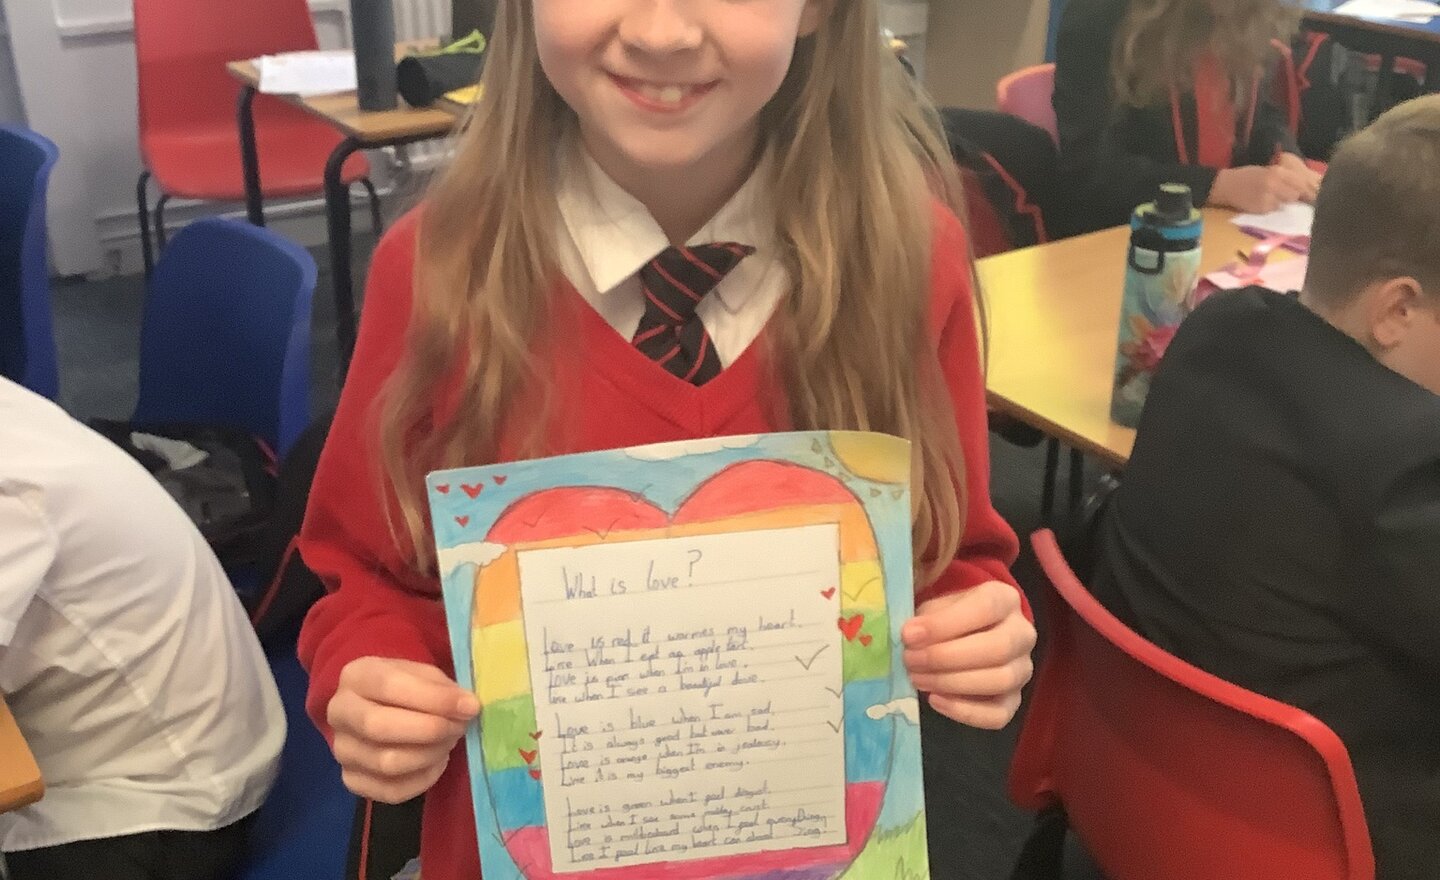 What is love?
Love is red it warmes my heart.
Like When I eat an apple tart.
Love is when I'm in love.
Like when I see a beautiful dove.
Love is blue when I am sad.
It is always good but never bad.
Love is orange when I'm in jealousy.
Like it is my biggest enemy.
Love is green when I feel disgust.
Like when I see some crust.
Love is when I feel everything.
Like I feel like my heart can about sing.